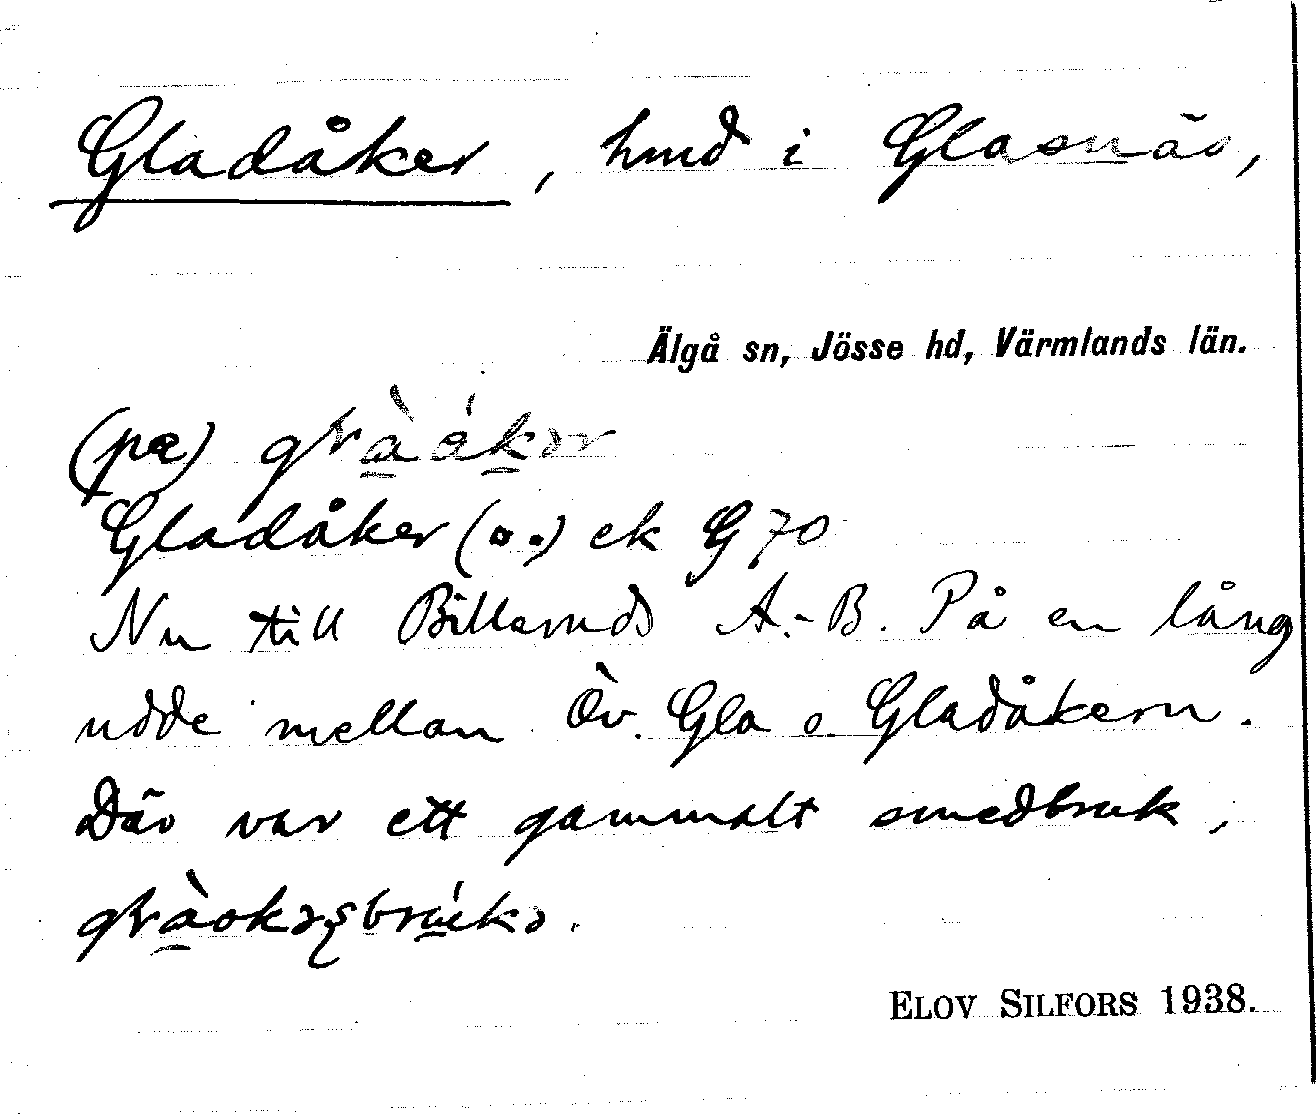 Gladåker, hmd i Glasnäs,
Älgå sn, Jösse hd, Värmlands län.
(pæ)
Gladåker (o.) ek G 70
Nu till Billeruds A.-B. På en lång
udde mellan Öv. Gla o. Gladåkern.
Där var ett gammalt smedbruk,
ELOV SILFORS 1938.